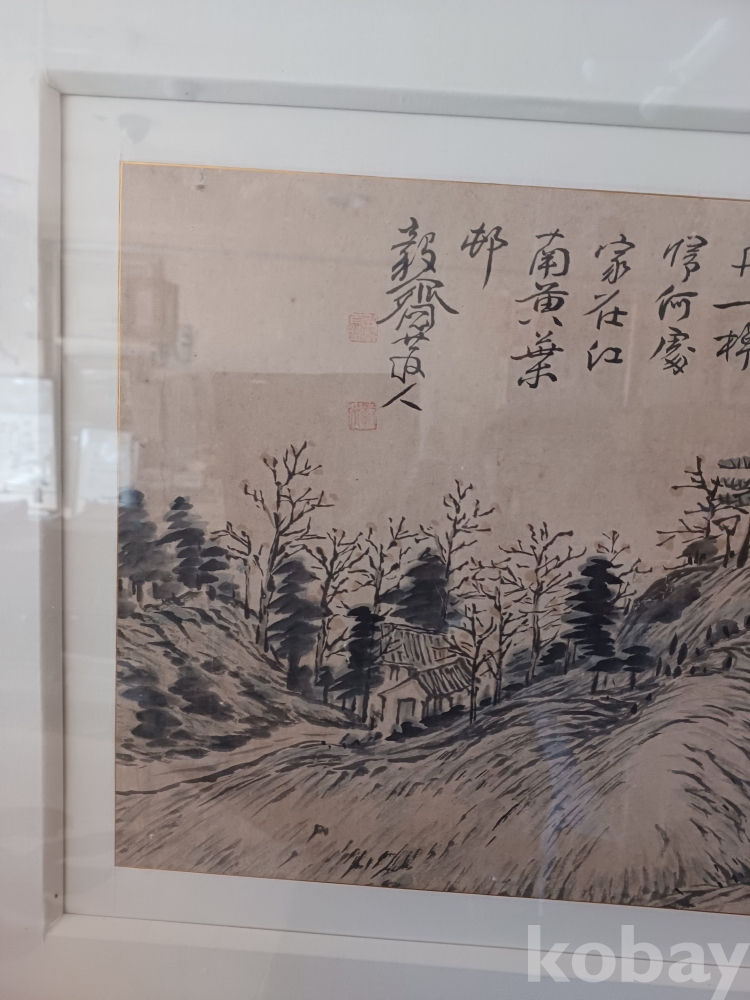 舟一棹
歸何處
家在江
南黃葉
邨
毅齋散人
kobay